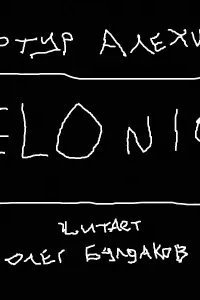 ртур Алехи
ELONI
читает
Олег Булдаков